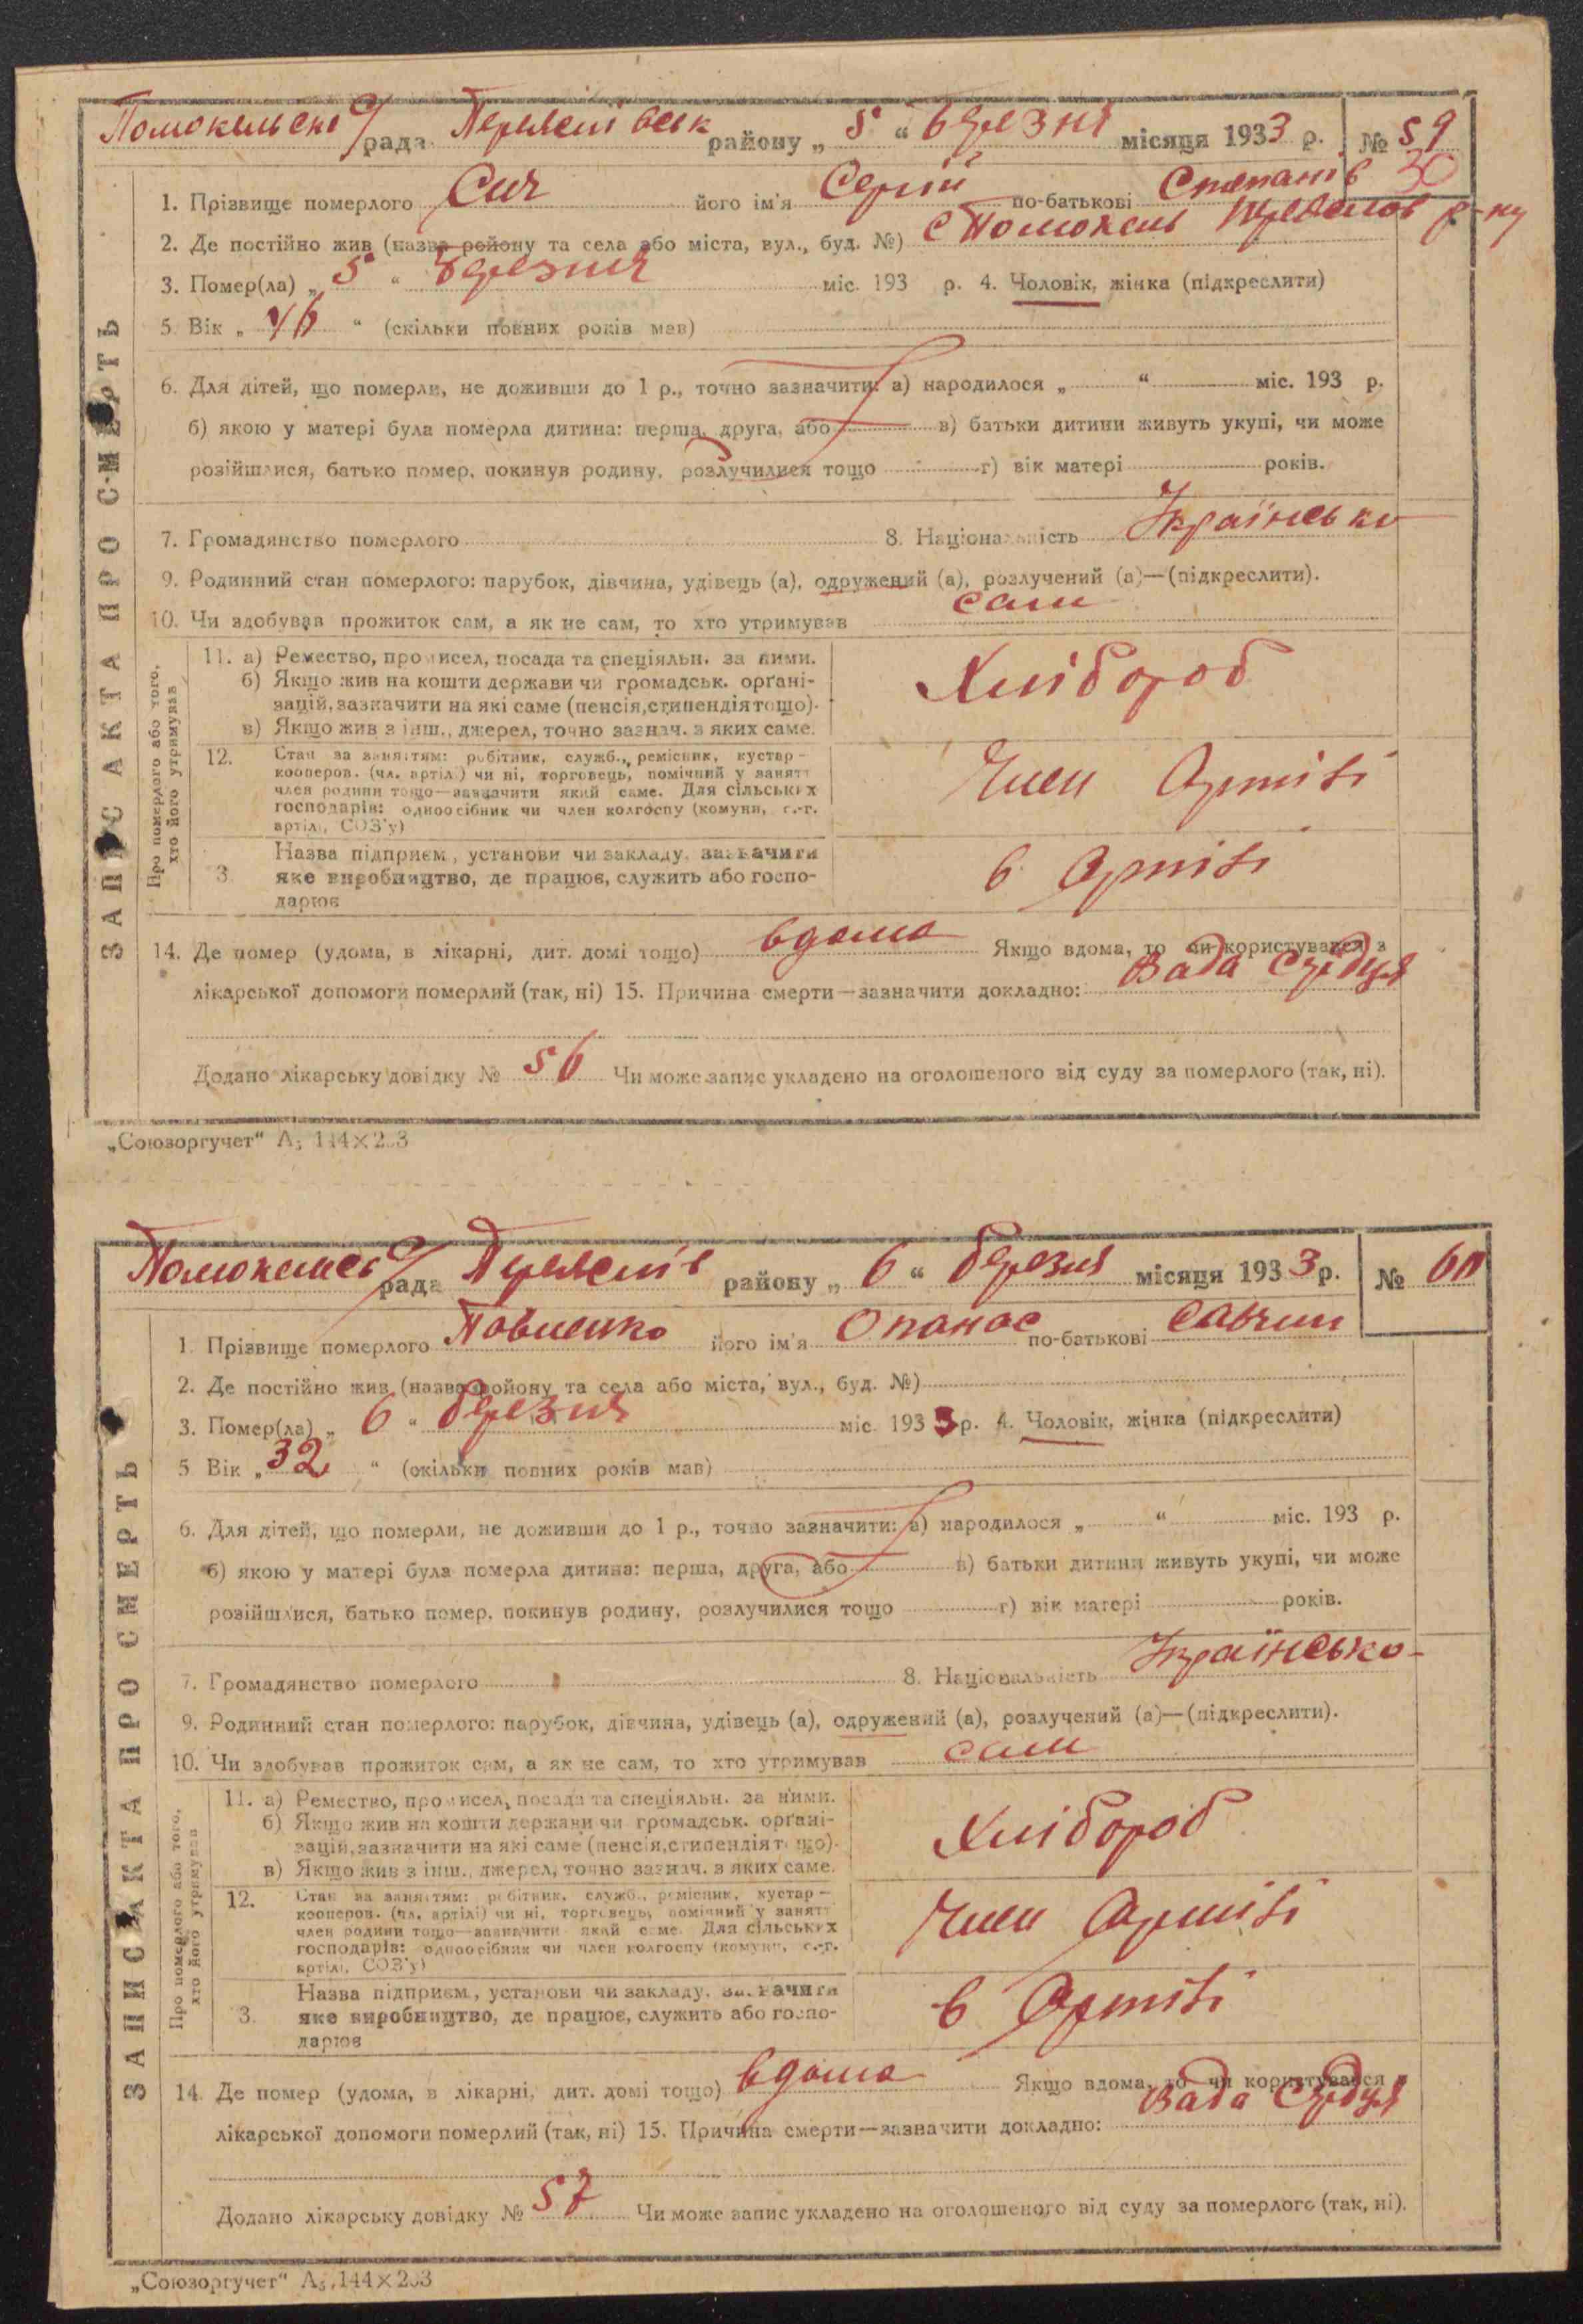 Помокельська с/рада Переяслівськ району „ 5 “ березня місяця 1933 р. № 59
30
1. Прізвище померлого Сич його ім'я Сергій по-батькові Степанів
2. Де постійно жив (назва району та села або міста, вул., буд. №) с Помокель Переяслов р-ну
3. Помер(ла) „ 5 “ березня міс. 193 р. 4. Чоловік, жінка (підкреслити)
5. Вік „ 46 “ (скільки повних років мав)
6. Для дітей, що померли, не доживши до 1 р., точно зазначити: а) народилося „ “ міс. 193 р.
б) якою у матері була померла дитина: перша, друга, або в) батьки дитини живуть укупі, чи може
розійшлися, батько помер, покинув родину, розлучилися тощо г) вік матері років.
7. Громадянство померлого 8. Національність Українська
9. Родинний стан померлого: парубок, дівчина, удівець (а), одружений (а), розлучений (а)—(підкреслити).
10. Чи здобував прожиток сам, а як не сам, то хто утримував сам
ЗАПИС АКТА ПРО СМЕРТЬ
Про померлого або того, хто його утримував
11. а) Ремество, промисел, посада та спеціяльн. за ними.
б) Якщо жив на кошти держави чи громадськ. органі-
зацій, зазначити на які саме (пенсія, стипендія тощо).
в) Якщо жив з інш., джерел, точно зазнач. з яких саме.
Хлібороб
12. Стан за заняттям: робітник, служб., ремісник, кустар—
кооперов. (чл. артілі) чи ні, торговець, помічний у занятт
член родини тощо—зазначити який саме. Для сільських
господарів: одноосібник чи член колгоспу (комуни, с.-г.
артілі, СОЗ'у)
Член Артілі
3. Назва підприєм., установи чи закладу, зазначити
яке виробництво, де працює, служить або госпо-
дарює
в Артілі
14. Де помер (удома, в лікарні, дит. домі тощо) вдома Якщо вдома, то чи користувався з
лікарської допомоги померлий (так, ні) 15. Причина смерти—зазначити докладно: Вада сердця
Додано лікарську довідку № 56 Чи може запис укладено на оголошеного від суду за померлого (так, ні).
„Союзоргучет“ А₅ 144×203
Помокельс с/рада Переяслів району „ 6 “ березня місяця 1933 р. № 60
1. Прізвище померлого Павленко його ім'я Опанас по-батькові Савчин
2. Де постійно жив (назва району та села або міста, вул., буд. №)
3. Помер(ла) „ 6 “ березня міс. 1933 р. 4. Чоловік, жінка (підкреслити)
5 Вік „ 32 “ (скільки повних років мав)
6. Для дітей, що померли, не доживши до 1 р., точно зазначити: а) народилося „ “ міс. 193 р.
б) якою у матері була померла дитина: перша, друга, або в) батьки дитини живуть укупі, чи може
розійшлися, батько помер, покинув родину, розлучилися тощо г) вік матері років.
7. Громадянство померлого 8. Національність Українська
9. Родинний стан померлого: парубок, дівчина, удівець (а), одружений (а), розлучений (а)—(підкреслити).
10. Чи здобував прожиток сам, а як не сам, то хто утримував сам
ЗАПИС АКТА ПРО СМЕРТЬ
Про померлого або того, хто його утримував
11. а) Ремество, промисел, посада та спеціяльн. за ними.
б) Якщо жив на кошти держави чи громадськ. органі-
зацій, зазначити на які саме (пенсія, стипендія тощо).
в) Якщо жив з інш., джерел, точно зазнач. з яких саме.
Хлібороб
12. Стан за заняттям: робітник, служб., ремісник, кустар—
кооперов. (чл. артілі) чи ні, торговець, помічний у занятт
член родини тощо—зазначити який саме. Для сільських
господарів: одноосібник чи член колгоспу (комуни, с.-г.
артілі, СОЗ'у)
Член Артілі
3. Назва підприєм., установи чи закладу, зазначити
яке виробництво, де працює, служить або госпо-
дарює
в Артілі
14. Де помер (удома, в лікарні, дит. домі тощо) вдома Якщо вдома, то чи користувався
лікарської допомоги померлий (так, ні) 15. Причина смерти—зазначити докладно: Вада Сердця
Додано лікарську довідку № 57 Чи може запис укладено на оголошеного від суду за померлого (так, ні).
„Союзоргучет“ А₅, 144×203